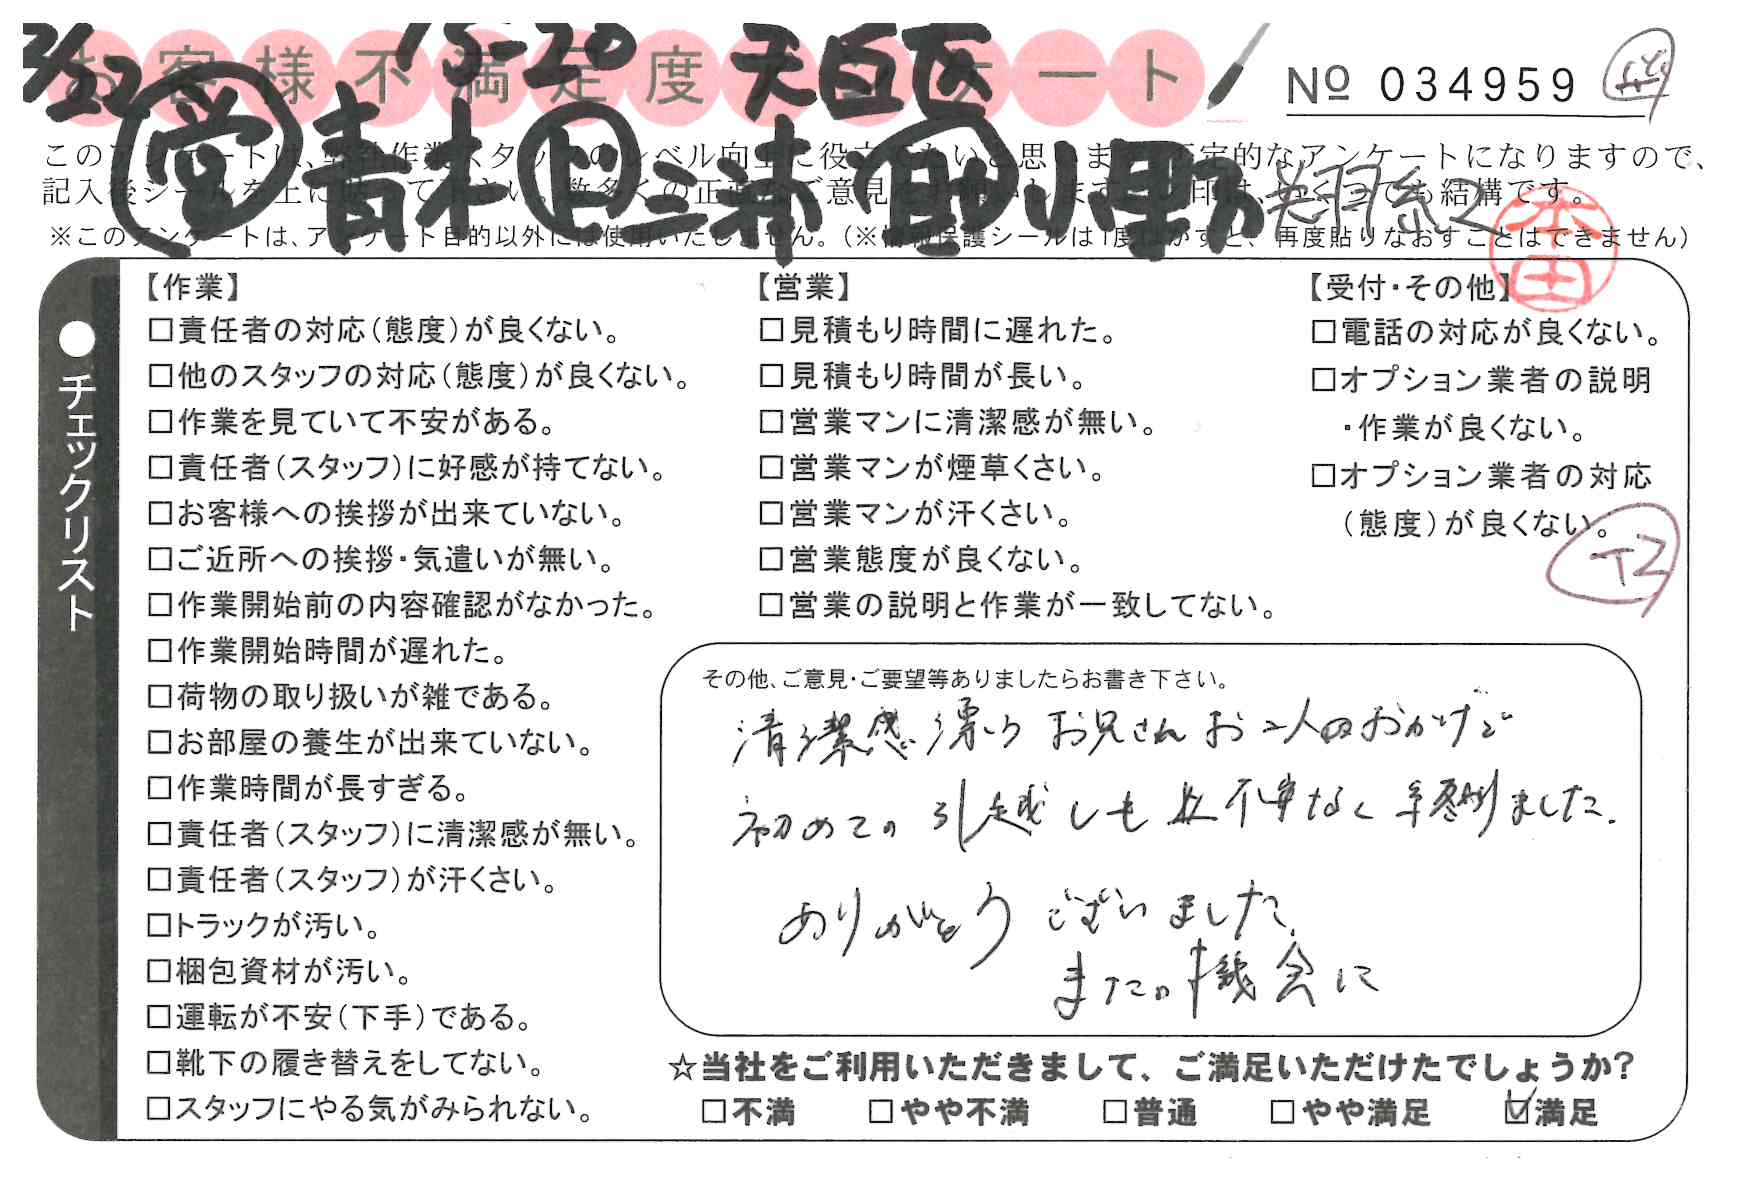 3/22 15-20 天白区
お客様不満足度アンケート
№ 034959
営 青木 ド 三浦 副 小野 翔
このアンケートは、弊社作業スタッフのレベル向上に役立てたいと思います。否定的なアンケートになりますので、
記入後シールを上に貼って下さい。数多くの正直なご意見をお願いします。
※このアンケートは、アンケート目的以外には使用いたしません。（※情報保護シールは1度はがすと、再度貼りなおすことはできません）
本田
●チェックリスト
【作業】
□責任者の対応（態度）が良くない。
□他のスタッフの対応（態度）が良くない。
□作業を見ていて不安がある。
□責任者（スタッフ）に好感が持てない。
□お客様への挨拶が出来ていない。
□ご近所への挨拶・気遣いが無い。
□作業開始前の内容確認がなかった。
□作業開始時間が遅れた。
□荷物の取り扱いが雑である。
□お部屋の養生が出来ていない。
□作業時間が長すぎる。
□責任者（スタッフ）に清潔感が無い。
□責任者（スタッフ）が汗くさい。
□トラックが汚い。
□梱包資材が汚い。
□運転が不安（下手）である。
□靴下の履き替えをしてない。
□スタッフにやる気がみられない。
【営業】
□見積もり時間に遅れた。
□見積もり時間が長い。
□営業マンに清潔感が無い。
□営業マンが煙草くさい。
□営業マンが汗くさい。
□営業態度が良くない。
□営業の説明と作業が一致してない。
【受付・その他】
□電話の対応が良くない。
□オプション業者の説明
・作業が良くない。
□オプション業者の対応
（態度）が良くない。
その他、ご意見・ご要望等ありましたらお書き下さい。
清潔感漂う お兄さん お二人のおかげで
初めての引越しも 不安なく ました。
ありがとう ございました。
またの機会に
☆当社をご利用いただきまして、ご満足いただけたでしょうか？
□不満 □やや不満 □普通 □やや満足 ☑満足